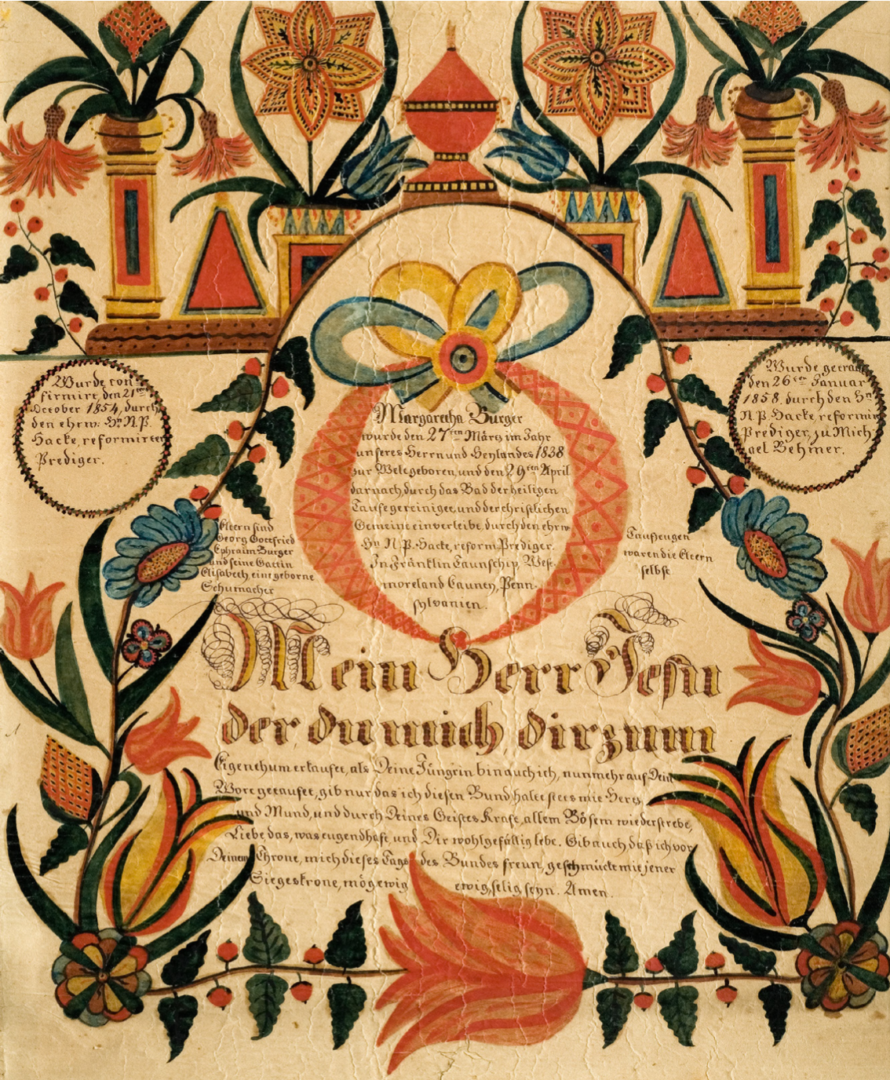 Wurde con
firmirt, den 21ten
October 1854, durch
den ehrw. Hr. N.P.
Hacke, reformirter
Prediger.
Wurde getraut
den 26ten Januar
1858, durch den Hr.
N.P. Hacke, reformirter
Prediger, zu Mich
ael Behmer.
Margaretha Burger
wurde den 27ten März im Jahr
unseres Herrn und Heylandes 1838
zur Welt geboren, und den 29ten April
darnach durch das Bad der heiligen
Taufe gereiniget, und der christlichen
Gemeine einverleibt, durch den ehrw.
Hr. N.P. Hacke, reform. Prediger.
In Franklin Taunschip, West-
moreland Caunty, Penn-
sylvanien.
Eltern sind
Georg Gottfried
Ephraim Burger
und seine Gattin
Elisabeth, eine geborne
Schumacher
Taufzeugen
waren die Eltern
selbst
Mein Herr Jesu
der du mich dir zum
Eigenthum erkaufet, als Deine Jüngrin bin auch ich, nunmehr auf Dein
Wort getaufet, gib nur das ich diesen Bund halte stets mit Herz
und Mund, und durch Deines Geistes Kraft, allem Bösem wiederstrebe,
Liebe das, was tugendhaft, und Dir wohlgefällig lebe. Gib auch daß ich vor
Deinem Throne, mich dieses Tags des Bundes freun, geschmückt mit jener
Siegeskrone, mög ewig ewig, selig seyn. Amen.